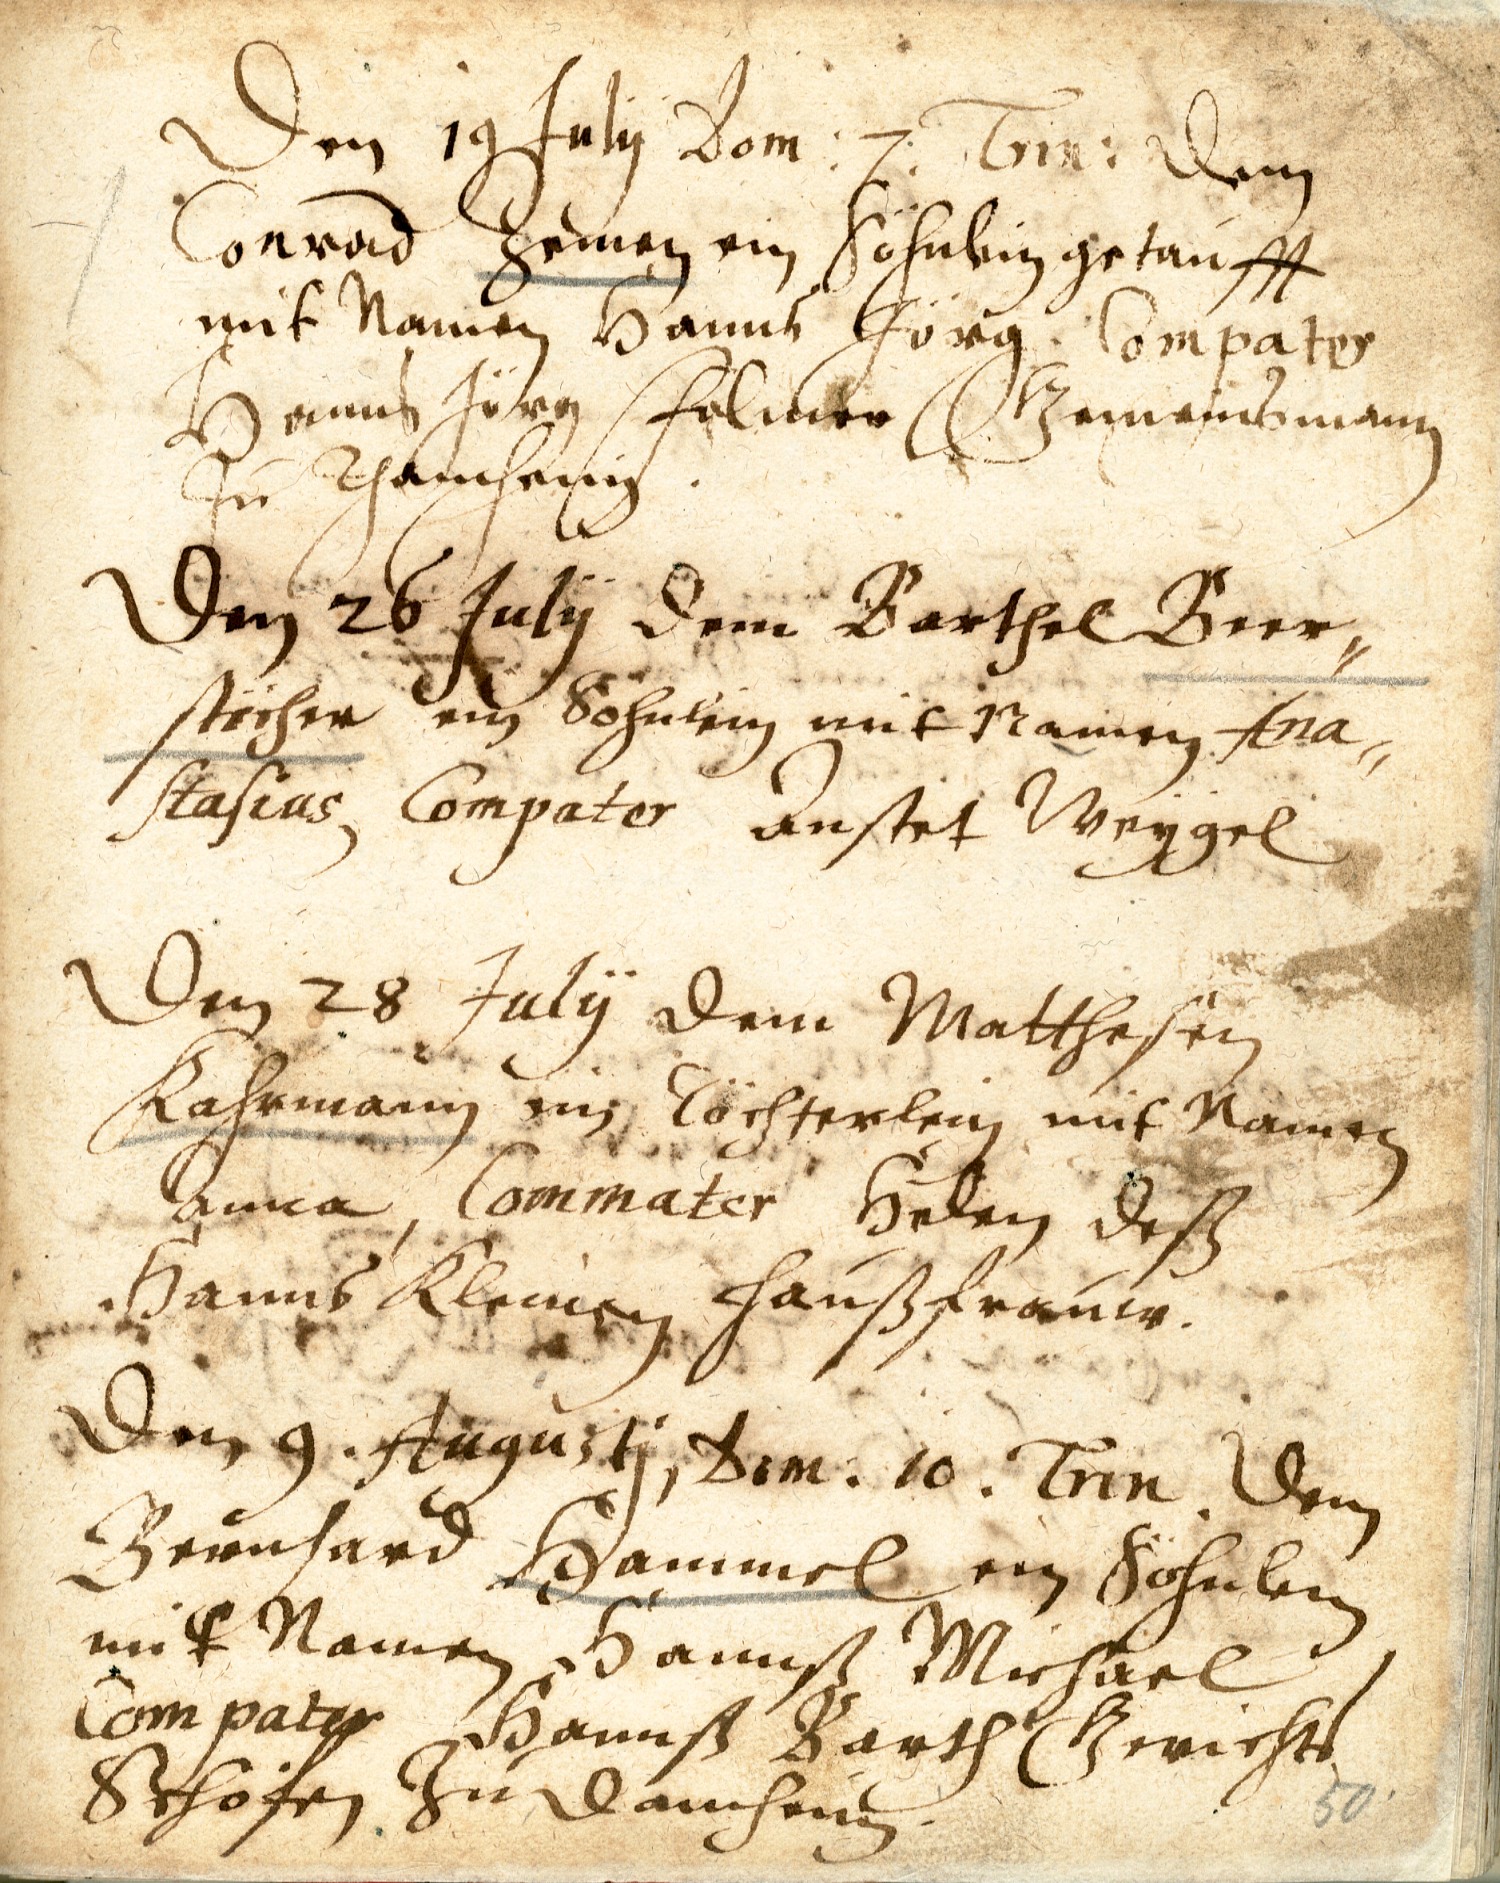 Den 19 Julÿ Dom: 7. Trin: dem
Conrad Zemen ein Söhnlein getaufft
mit Namen Hanns Jörg. Compater
Hanns Jörg Folmer Gemeinsmann
Zu Thamheim.
Den 26 Julÿ dem Barthel Beer„
stöcher ein Söhnlein mit Namen Ana„
stasius, Compater Anstet Weÿgel
Den 28 Julÿ dem Matthesen
Kahrmann ein Töchterlein mit Namen
Anna, Commater Helen deß
Hanns Kleinen Haußfrauw.
Den 9. Augustj, Dom: 10. Trin. dem
Bernhard Hammel ein Söhnlein
mit Namen Hannß Michael
Compater Hannß Barth Gerichts
Schöfen Zu Damheim.
50.